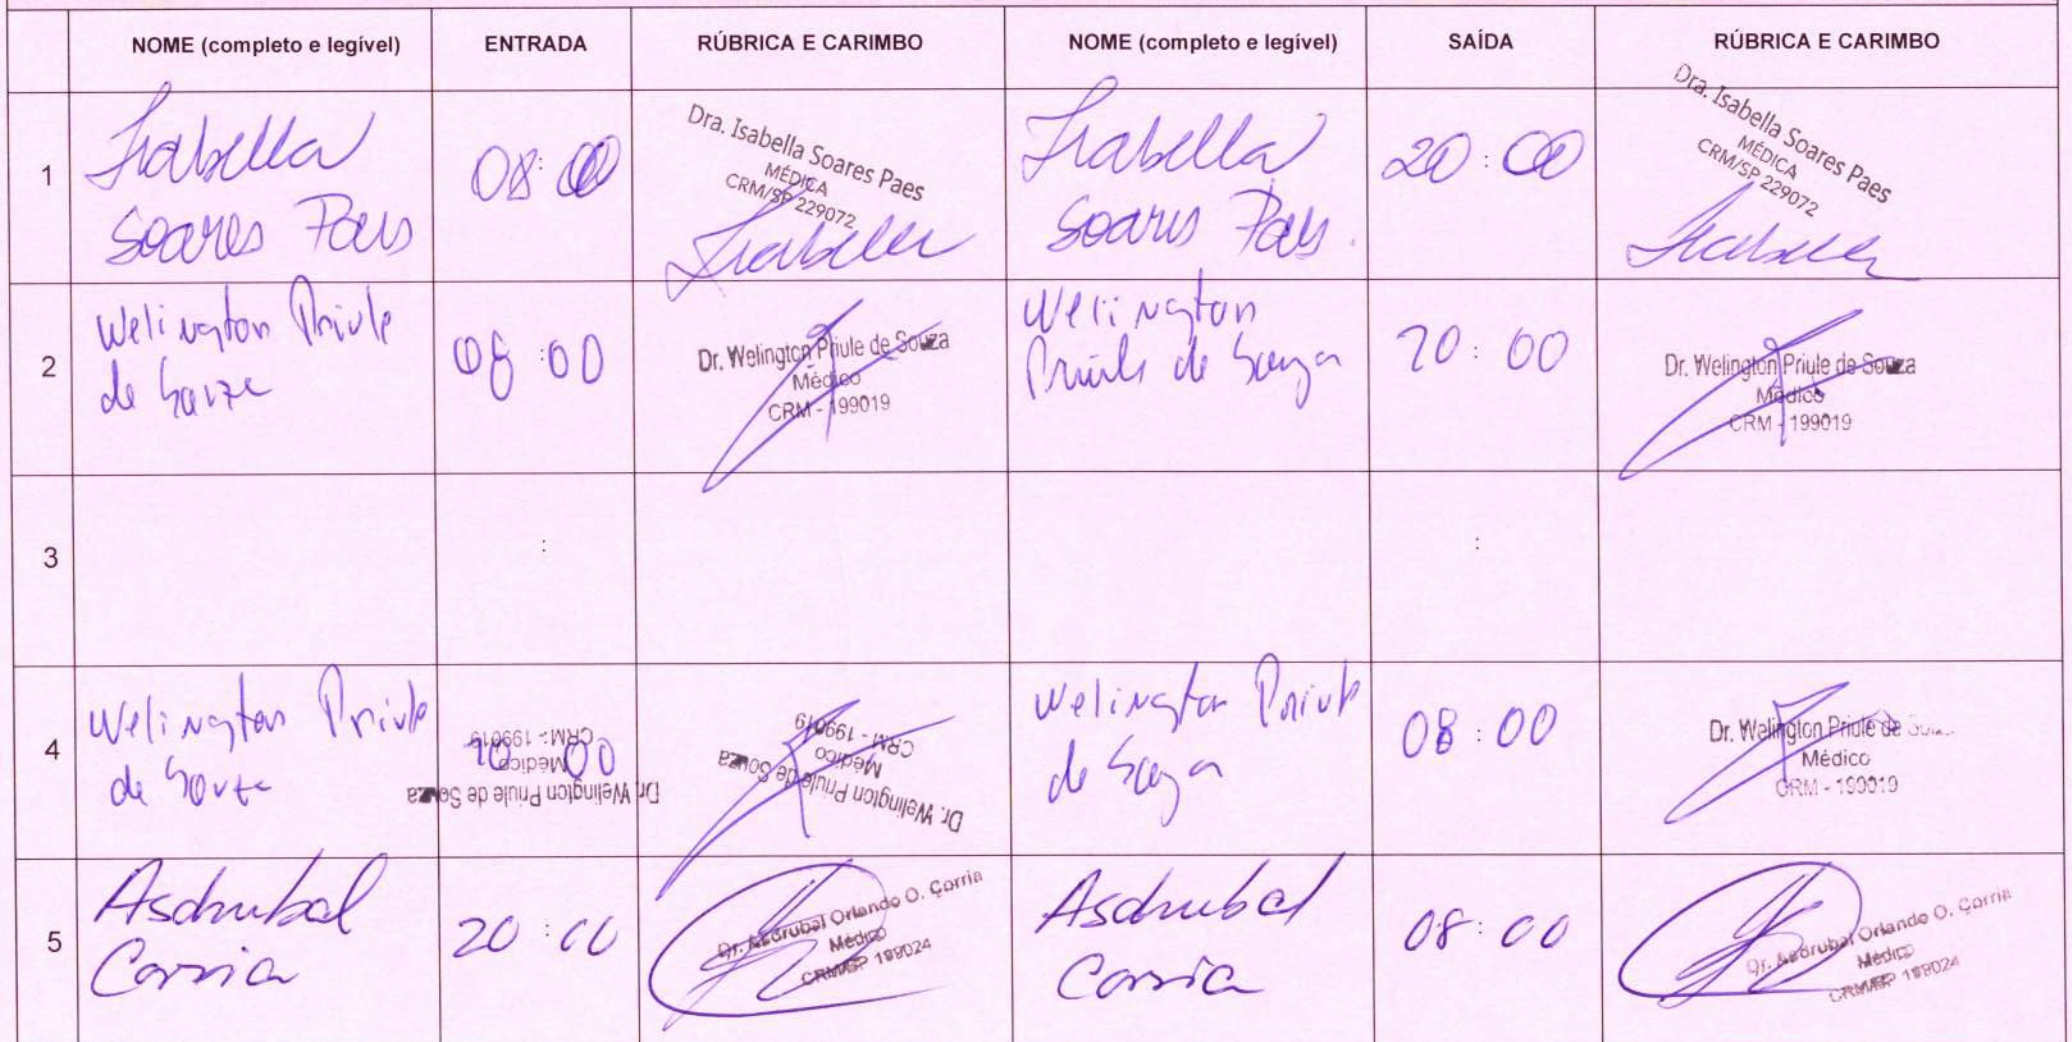 NOME (completo e legível) ENTRADA RÚBRICA E CARIMBO NOME (completo e legível) SAÍDA RÚBRICA E CARIMBO
1
Isabella
Soares Paes
08:00
Dra. Isabella Soares Paes
MÉDICA
CRM/SP 229072
Isabella
Isabella
Soares Paes
20:00
Dra. Isabella Soares Paes
MÉDICA
CRM/SP 229072
Isabella
2
Welington Priule
de Souza
08:00
Dr. Welington Priule de Souza
Médico
CRM - 199019
Welington
Priule de Souza
20:00
Dr. Welington Priule de Souza
Médico
CRM - 199019
3
:
:
4
Welington Priule
de Souza
20:00
Dr. Welington Priule de Souza
Médico
CRM - 199019
Dr. Welington Priule de Souza
Médico
CRM - 199019
Welington Priule
de Souza
08:00
Dr. Welington Priule de
Médico
CRM - 199019
5
Asdrubal
Corria
20:00
Dr. Asdrubal Orlando O. Corria
Médico
CRM/SP 199024
Asdrubal
Corria
08:00
Dr. Asdrubal Orlando O. Corria
Médico
CRM/SP 199024